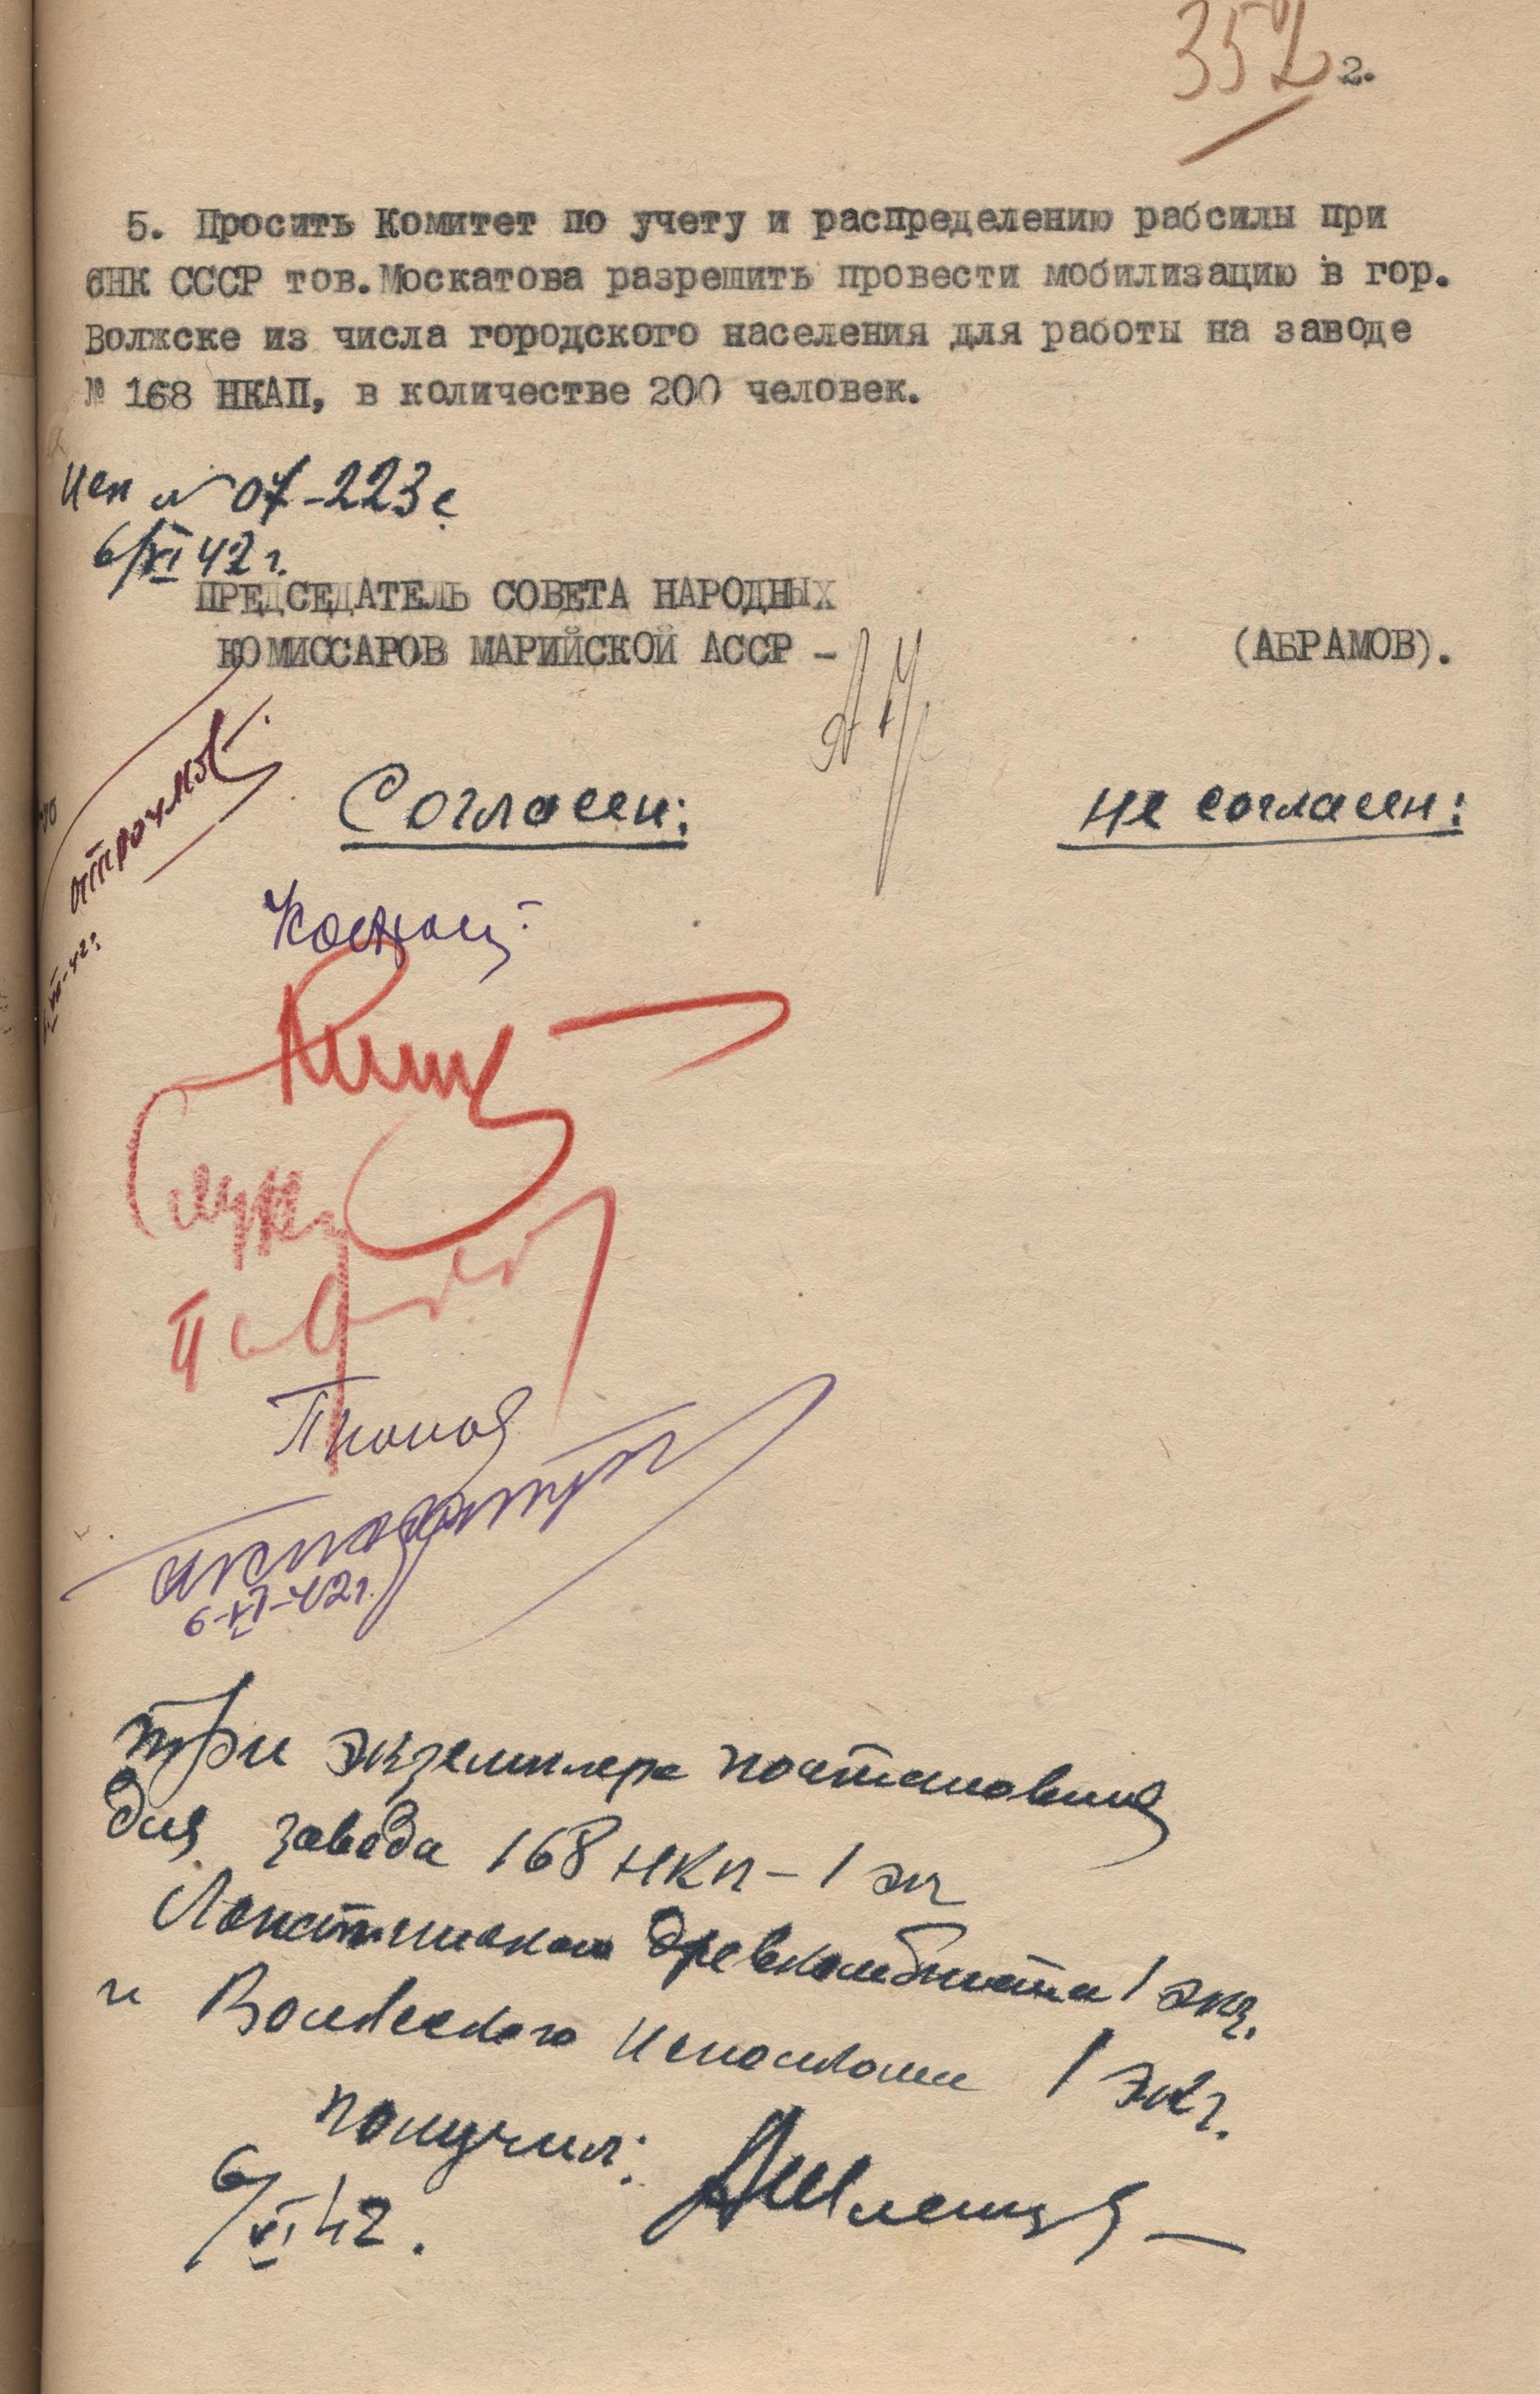 352 2.
5. Просить Комитет по учету и распределению рабсилы при
СНК СССР тов.Москатова разрешить провести мобилизацию в гор.
Волжске из числа городского населения для работы на заводе
№ 168 НКАП, в количестве 200 человек.
Исп № 07-223с
6/XI 42 г.
ПРЕДСЕДАТЕЛЬ СОВЕТА НАРОДНЫХ
КОМИССАРОВ МАРИЙСКОЙ АССР - (АБРАМОВ).
Согласен: не согласен:
6-XI-42г.
три экземпляра постановления
для завода 168 НКП - 1 эк
Лопатинского древкомбината 1 экз.
и Волжского Исполкома 1 экз.
получил:
6/XI 42.